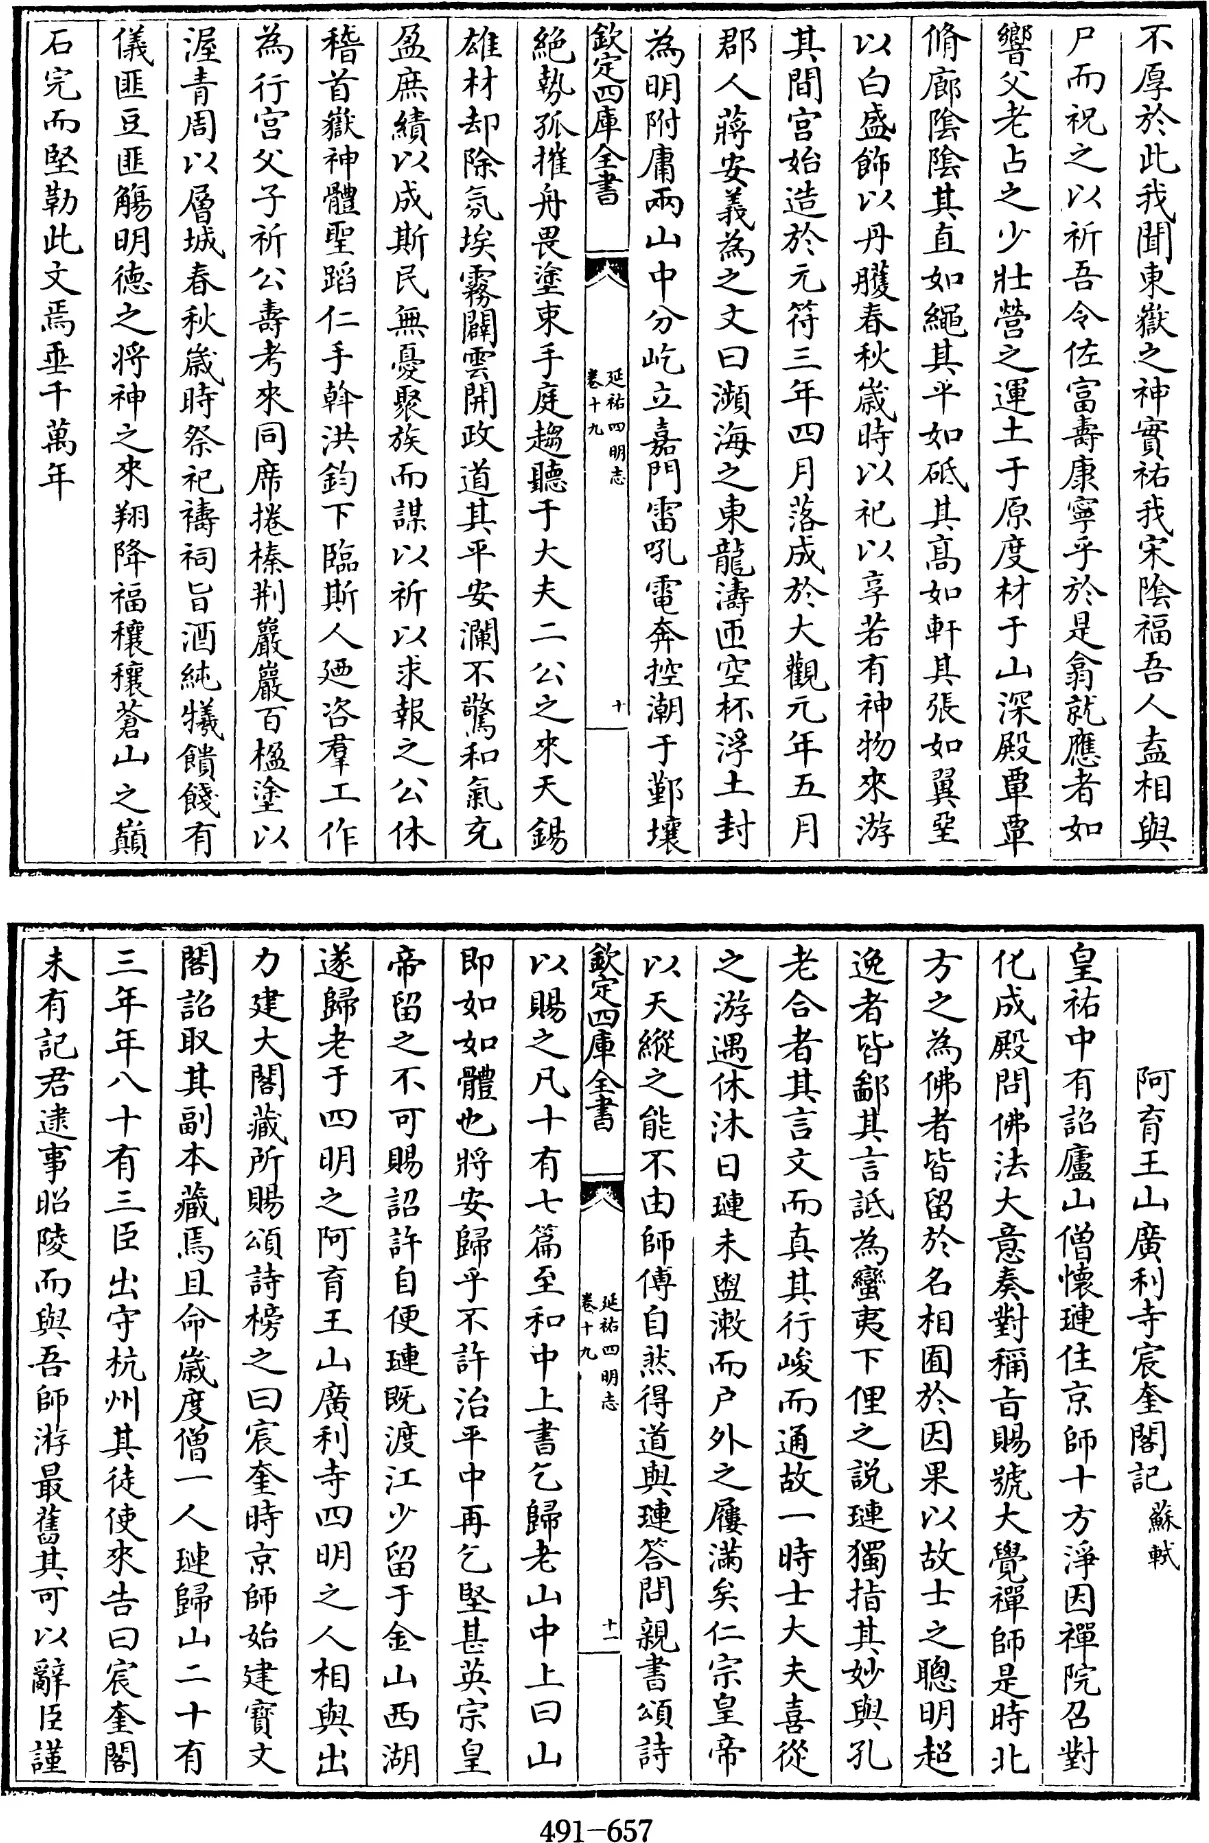 不厚於此我聞東嶽之神實祐我宋陰福吾人盍相與
尸而祝之以祈吾令佐富壽康寧乎於是翕就應者如
響父老占之少壯營之運土于原度材于山深殿覃覃
脩廊陰陰其直如繩其平如砥其高如軒其張如翼堊
以白盛飾以丹雘春秋歲時以祀以享若有神物來游
其間宮始造於元符三年四月落成於大觀元年五月
郡人蔣安義為之文曰瀕海之東龍濤匝空杯浮土封
為明附庸兩山中分屹立嘉門雷吼電奔控潮于鄞壤
欽定四庫全書
延祐四明志
卷十九
十
絶勢孤摧舟畏塗束手庭趨聽于大夫二公之來天錫
雄材却除氛埃霧闢雲開政道其平安瀾不驚和氣充
盈庶績以成斯民無憂聚族而謀以祈以求報之公休
稽首嶽神體聖蹈仁手斡洪鈞下臨斯人迺咨羣工作
為行宮父子祈公壽考來同席捲榛荆巖巖百楹塗以
渥青周以層城春秋歲時祭祀禱祠旨酒純犧饋餞有
儀匪豆匪觴明德之將神之來翔降福穰穰蒼山之巔
石完而堅勒此文焉垂千萬年
阿育王山廣利寺宸奎閣記 蘇軾
皇祐中有詔廬山僧懷璉住京師十方淨因禪院召對
化成殿問佛法大意奏對稱旨賜號大覺禪師是時北
方之為佛者皆留於名相囿於因果以故士之聰明超
逸者皆鄙其言詆為蠻夷下俚之説璉獨指其妙與孔
老合者其言文而真其行峻而通故一時士大夫喜從
之游遇休沐日璉未盥漱而户外之屨滿矣仁宗皇帝
以天縱之能不由師傅自然得道與璉答問親書頌詩
欽定四庫全書
延祐四明志
卷十九
十一
以賜之凡十有七篇至和中上書乞歸老山中上曰山
即如如體也將安歸乎不許治平中再乞堅甚英宗皇
帝留之不可賜詔許自便璉既渡江少留于金山西湖
遂歸老于四明之阿育王山廣利寺四明之人相與出
力建大閣藏所賜頌詩榜之曰宸奎時京師始建寶文
閣詔取其副本藏焉且命歲度僧一人璉歸山二十有
三年年八十有三臣出守杭州其徒使來告曰宸奎閣
未有記君逮事昭陵而與吾師游最舊其可以辭臣謹
491-657